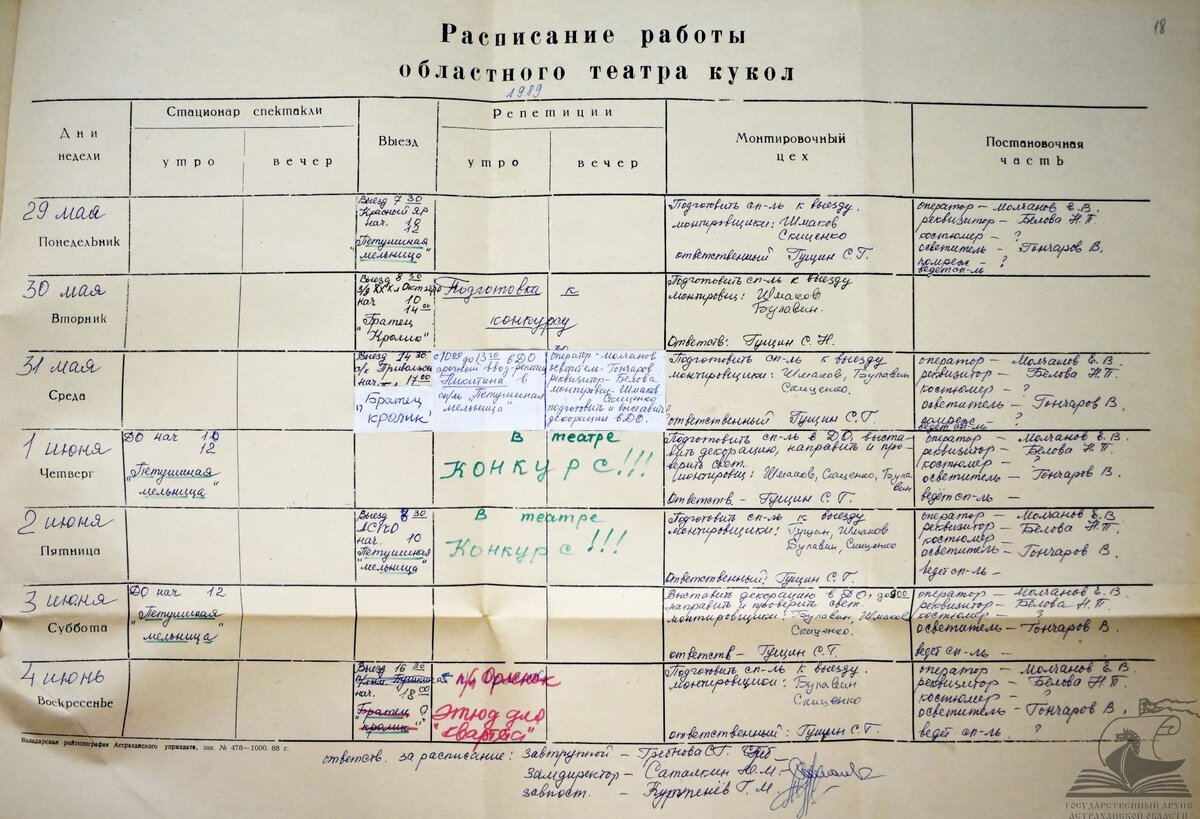 18
Расписание работы
областного театра кукол
1989
Дни
недели
Стационар спектакли
утро
вечер
Выезд
Репетиции
утро
вечер
Монтировочный
цех
Постановочная
часть
29 мая
Понедельник
Выезд 7 30
Красный Яр
нач. 10
12
"Петушиная
мельница"
Подготовить сп-ль к выезду.
монтировщики: Шмаков
Скищенко
ответственный Гущин С.Г.
оператор – Молчанов Е.В.
реквизитор – Белова Н.П.
костюмер – ?
осветитель – Гончаров В.
помреж – ?
ведет сп-ль
30 мая
Вторник
Выезд 8 30
нач 10
14 00
"Братец
Кролик"
Подготовка к
конкурсу
Подготовить сп-ль к выезду
монтировщ: Шмаков
Булавин.
Ответств: Гущин С.Н.
31 мая
Среда
Выезд 14 30
нач. 17 00
"Братец
кролик"
с 10 00 до 13 30 в ДО
срочный ввод-репетиц
Никитина в
сп/ль "Петушиная
мельница"
оператор – Молчанов
осветитель – Гончаров
реквизит – Белова
монтировщ – Шмаков
Скищенко
подготовить и выставить
декорации в ДО.
Подготовить сп-ль к выезду
монтировщики: Шмаков, Булавин
Скищенко.
ответственный Гущин С.Г.
оператор – Молчанов Е.В.
реквизитор – Белова Н.П.
костюмер – ?
осветитель – Гончаров В.
помреж – ?
ведет сп-ль –
1 июня
Четверг
ДО нач 10
12
"Петушиная
мельница"
В театре
Конкурс!!!
Подготовить сп-ль в ДО, выста-
вить декорацию, направить и про-
верить свет.
монтировщ: Шмаков, Скищенко, Була
вин
Ответств. – Гущин С.Г.
оператор – Молчанов Е.В.
реквизитор – Белова Н.П.
костюмер – ?
осветитель – Гончаров В.
ведет сп-ль –
2 июня
Пятница
Выезд 8 30
нач. 10
"Петушиная
мельница"
В театре
Конкурс!!!
Подготовить сп-ль к выезду
монтировщики: Гущин, Шмаков
Булавин, Скищенко
ответственный: Гущин С.Г.
оператор – Молчанов Е.В.
реквизитор – Белова Н.П.
костюмер –
осветитель – Гончаров В.
ведет сп-ль –
3 июня
Суббота
ДО нач 12
"Петушиная
мельница"
Выставить декорацию в ДО, до 9 00
направить и проверить свет.
монтировщики: Булавин, Шмаков
Скищенко.
ответств – Гущин С.Г.
оператор – Молчанов Е.В.
реквизитор – Белова Н.П.
костюмер – ?
осветитель – Гончаров В.
ведет сп-ль –
4 июнь
Воскресенье
Выезд 16 30
нач. 18 00
"Братец
кролик" ?
п/л Орленок
Этюд для
"Квартета"
Подготовить сп-ль к выезду.
монтировщики: Булавин
Скищенко
ответственный: Гущин С.Г.
оператор – Молчанов Е.В.
реквизитор – Белова Н.П.
костюмер – ?
осветитель – Гончаров В.
ведет сп-ль. ?
Володарская райтипография Астраханского уприздата, зак. № 478—1000. 88 г.
ответств. за расписание: завтруппой –
замдиректор – Саталкин Ю.М. –
завпост. –
ГОСУДАРСТВЕННЫЙ АРХИВ
АСТРАХАНСКОЙ ОБЛАСТИ